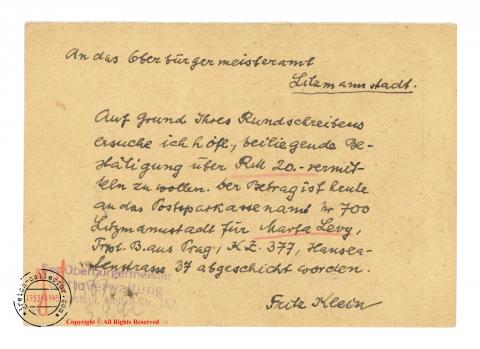 An das Oberbürgermeisteramt
Litzmannstadt.
Auf Grund Ihres Rundschreibens
ersuche ich höfl., beiliegende Be-
stätigung über RM 20.- vermit-
teln zu wollen. Der Betrag ist heute
an das Postsparkassenamt Nr 700
Litzmannstadt für Marta Levy,
Trpt. B. aus Prag, K.Z. 377, Hansea-
tenstrasse, 37 abgeschickt worden.
Der Oberbürgermeister
verwaltung
Fritz Klein
Copyright © All Rights Reserved